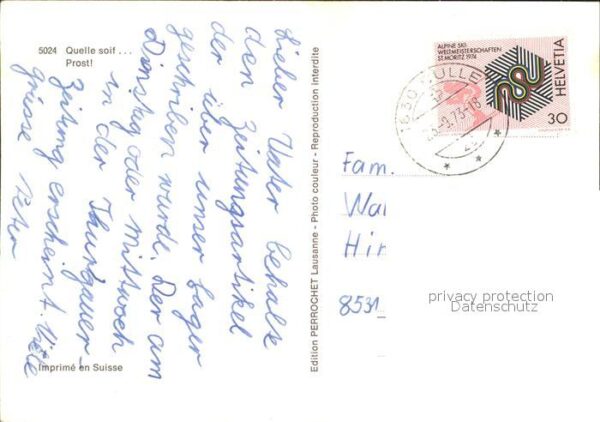 5024 Quelle soif ...
Prost!
Lieber Vater behalte
den Zeitungsartikel
der über unser Lager
geschriben wurde. Der am
Dinstag oder mittwoch
in der Thurgauer-
Zeitung erscheint. Viele
grüsse Peter
Imprimé en Suisse
Edition PERROCHET Lausanne - Photo couleur - Reproduction interdite
ALPINE SKI
WELTMEISTERSCHAFTEN
ST. MORITZ 1974
HELVETIA
30
1630 BULLE
73-18
Fam.
Wal
Hir
8531
privacy protection
Datenschutz